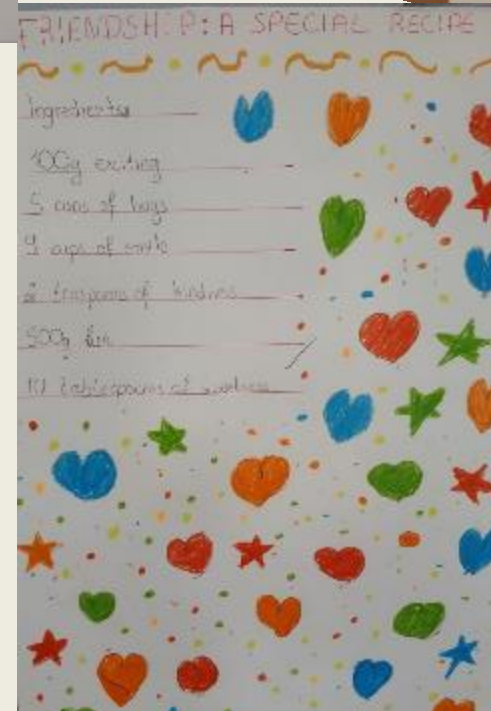 FRIENDSHIP: A SPECIAL RECIPE
Ingredients
100g
5 cups of hugs
9 cups of smile
2 teaspoons of kindness
500g fun
10 tablespoons of